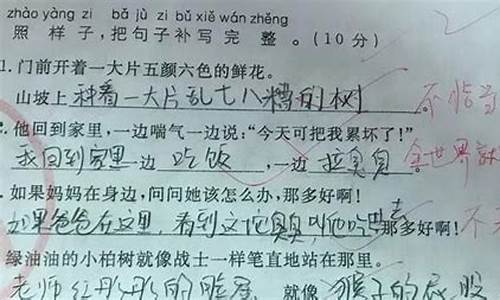 zhào yàng zi bǎ jù zi bǔ xiě wán zhěng
照样子,把句子补写完整。(10分)
1.门前开着一大片五颜六色的鲜花。
山坡上种着一大片乱七八糟的树。不恰当
2.他回到家里,一边喘气一边说:“今天可把我累坏了!”
我回到家里一边吃饭,一边拉臭臭。全世界就
.如果妈妈在身边,问问她该怎么办,那多好啊!
如果爸爸在这里,看到这坨臭臭叫他吃去那多好啊!不
绿油油的小柏树就像战士一样笔直地站在那里。
老师红彤彤的脸蛋就像猴子的屁股